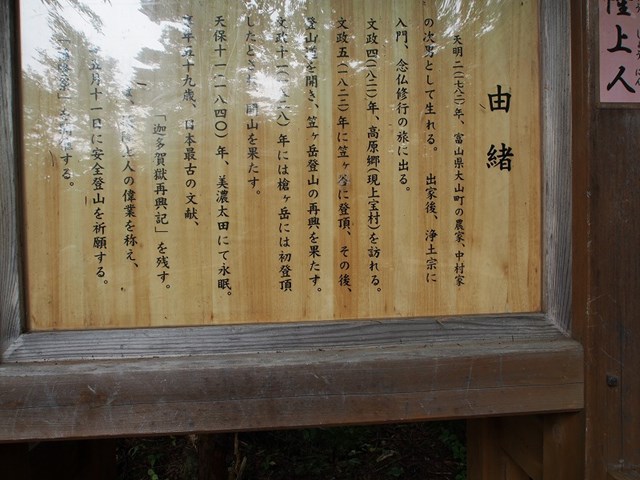 隆上人
由緒
天明二(一七八二)年、富山県大山町の農家、中村家
の次男として生れる。 出家後、浄土宗に
入門、念仏修行の旅に出る。
文政四(一八二一)年、高原郷(現上宝村)を訪れる。
文政五(一八二二)年に笠ヶ岳に登頂、その後、
登山道を開き、笠ヶ岳登山の再興を果たす。
文政十一(一八二八)年には槍ヶ岳には初登頂
したとさ 開山を果たす。
天保十一(一八四〇)年、美濃太田にて永眠。
年五十九歳、日本最古の文献、
「迦多賀嶽再興記」を残す。
上人の偉業を称え、
五月十一日に安全登山を祈願する。
する。